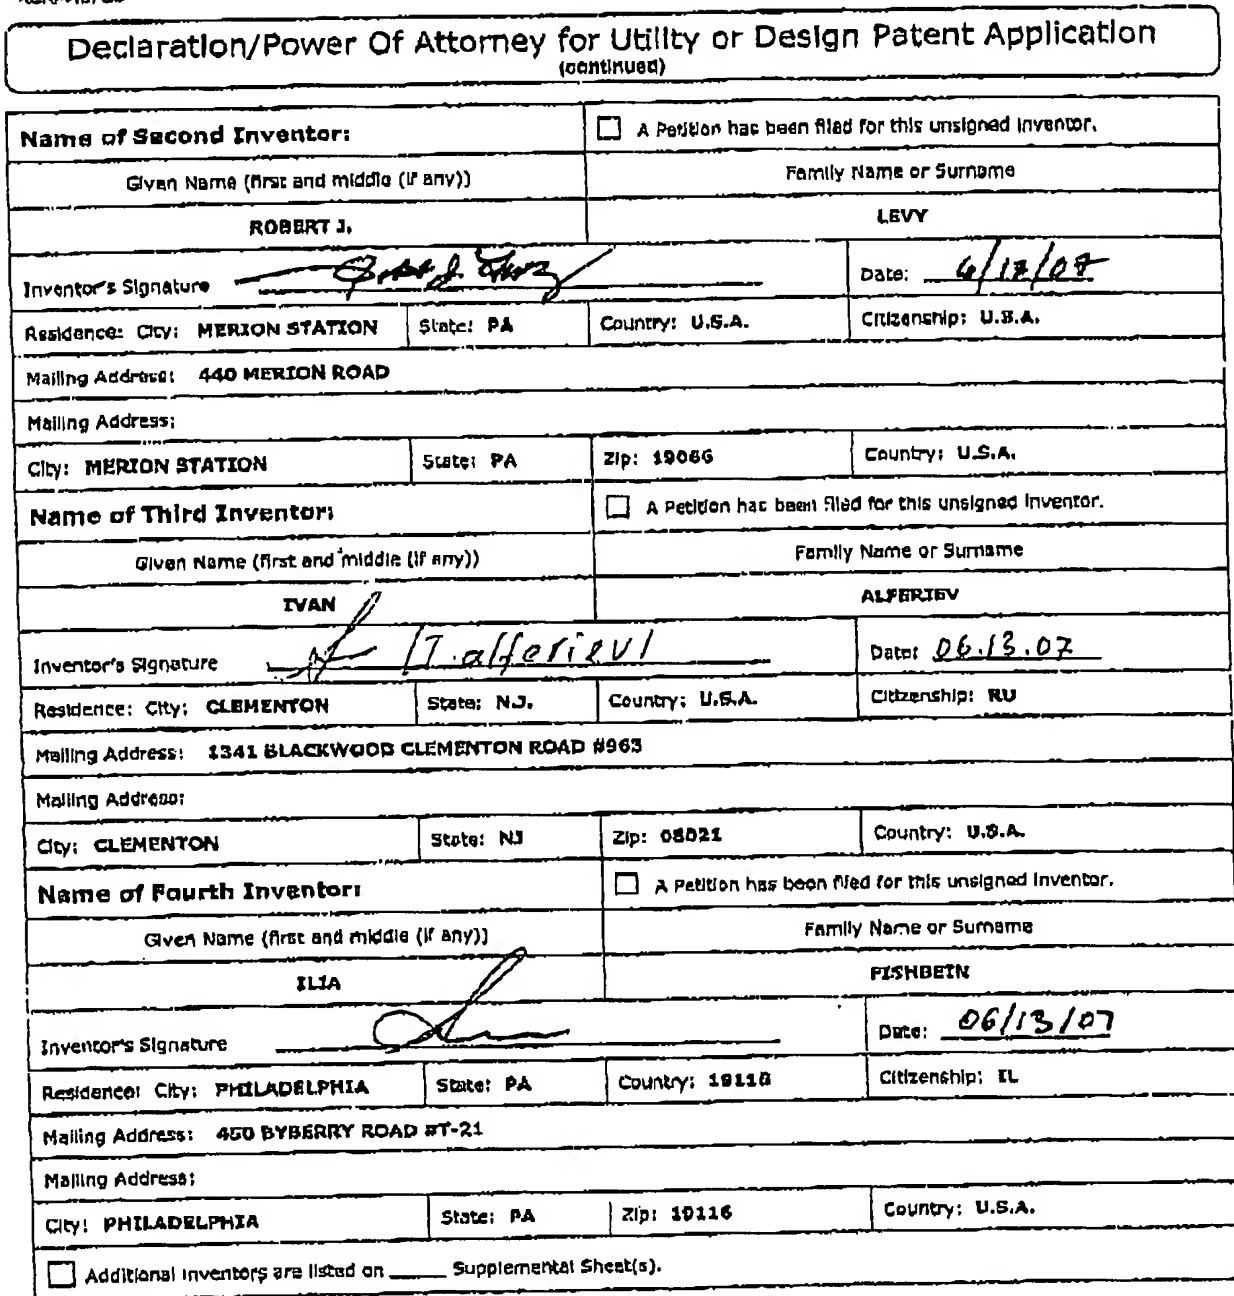 Declaration/Power Of Attorney for Utility or Design Patent Application
(continued)
Name of Second Inventor: A Petition has been filed for this unsigned inventor.
Given Name (first and middle (if any)) Family Name or Surname
ROBERT J. LEVY
Inventor's Signature Date: 6/12/07
Residence: City: MERION STATION State: PA Country: U.S.A. Citizenship: U.S.A.
Mailing Address: 440 MERION ROAD
Mailing Address:
City: MERION STATION State: PA Zip: 19066 Country: U.S.A.
Name of Third Inventor: A Petition has been filed for this unsigned inventor.
Given Name (first and middle (if any)) Family Name or Surname
IVAN ALFERIEV
Inventor's Signature /I. alferiev/ Date: 06.13.07
Residence: City: CLEMENTON State: N.J. Country: U.S.A. Citizenship: RU
Mailing Address: 1341 BLACKWOOD CLEMENTON ROAD #963
Mailing Address:
City: CLEMENTON State: NJ Zip: 08021 Country: U.S.A.
Name of Fourth Inventor: A Petition has been filed for this unsigned inventor.
Given Name (first and middle (if any)) Family Name or Surname
ILIA FISHBEIN
Inventor's Signature Date: 06/13/07
Residence: City: PHILADELPHIA State: PA Country: 19116 Citizenship: IL
Mailing Address: 450 BYBERRY ROAD #T-21
Mailing Address:
City: PHILADELPHIA State: PA Zip: 19116 Country: U.S.A.
Additional inventors are listed on _____ Supplemental Sheet(s).